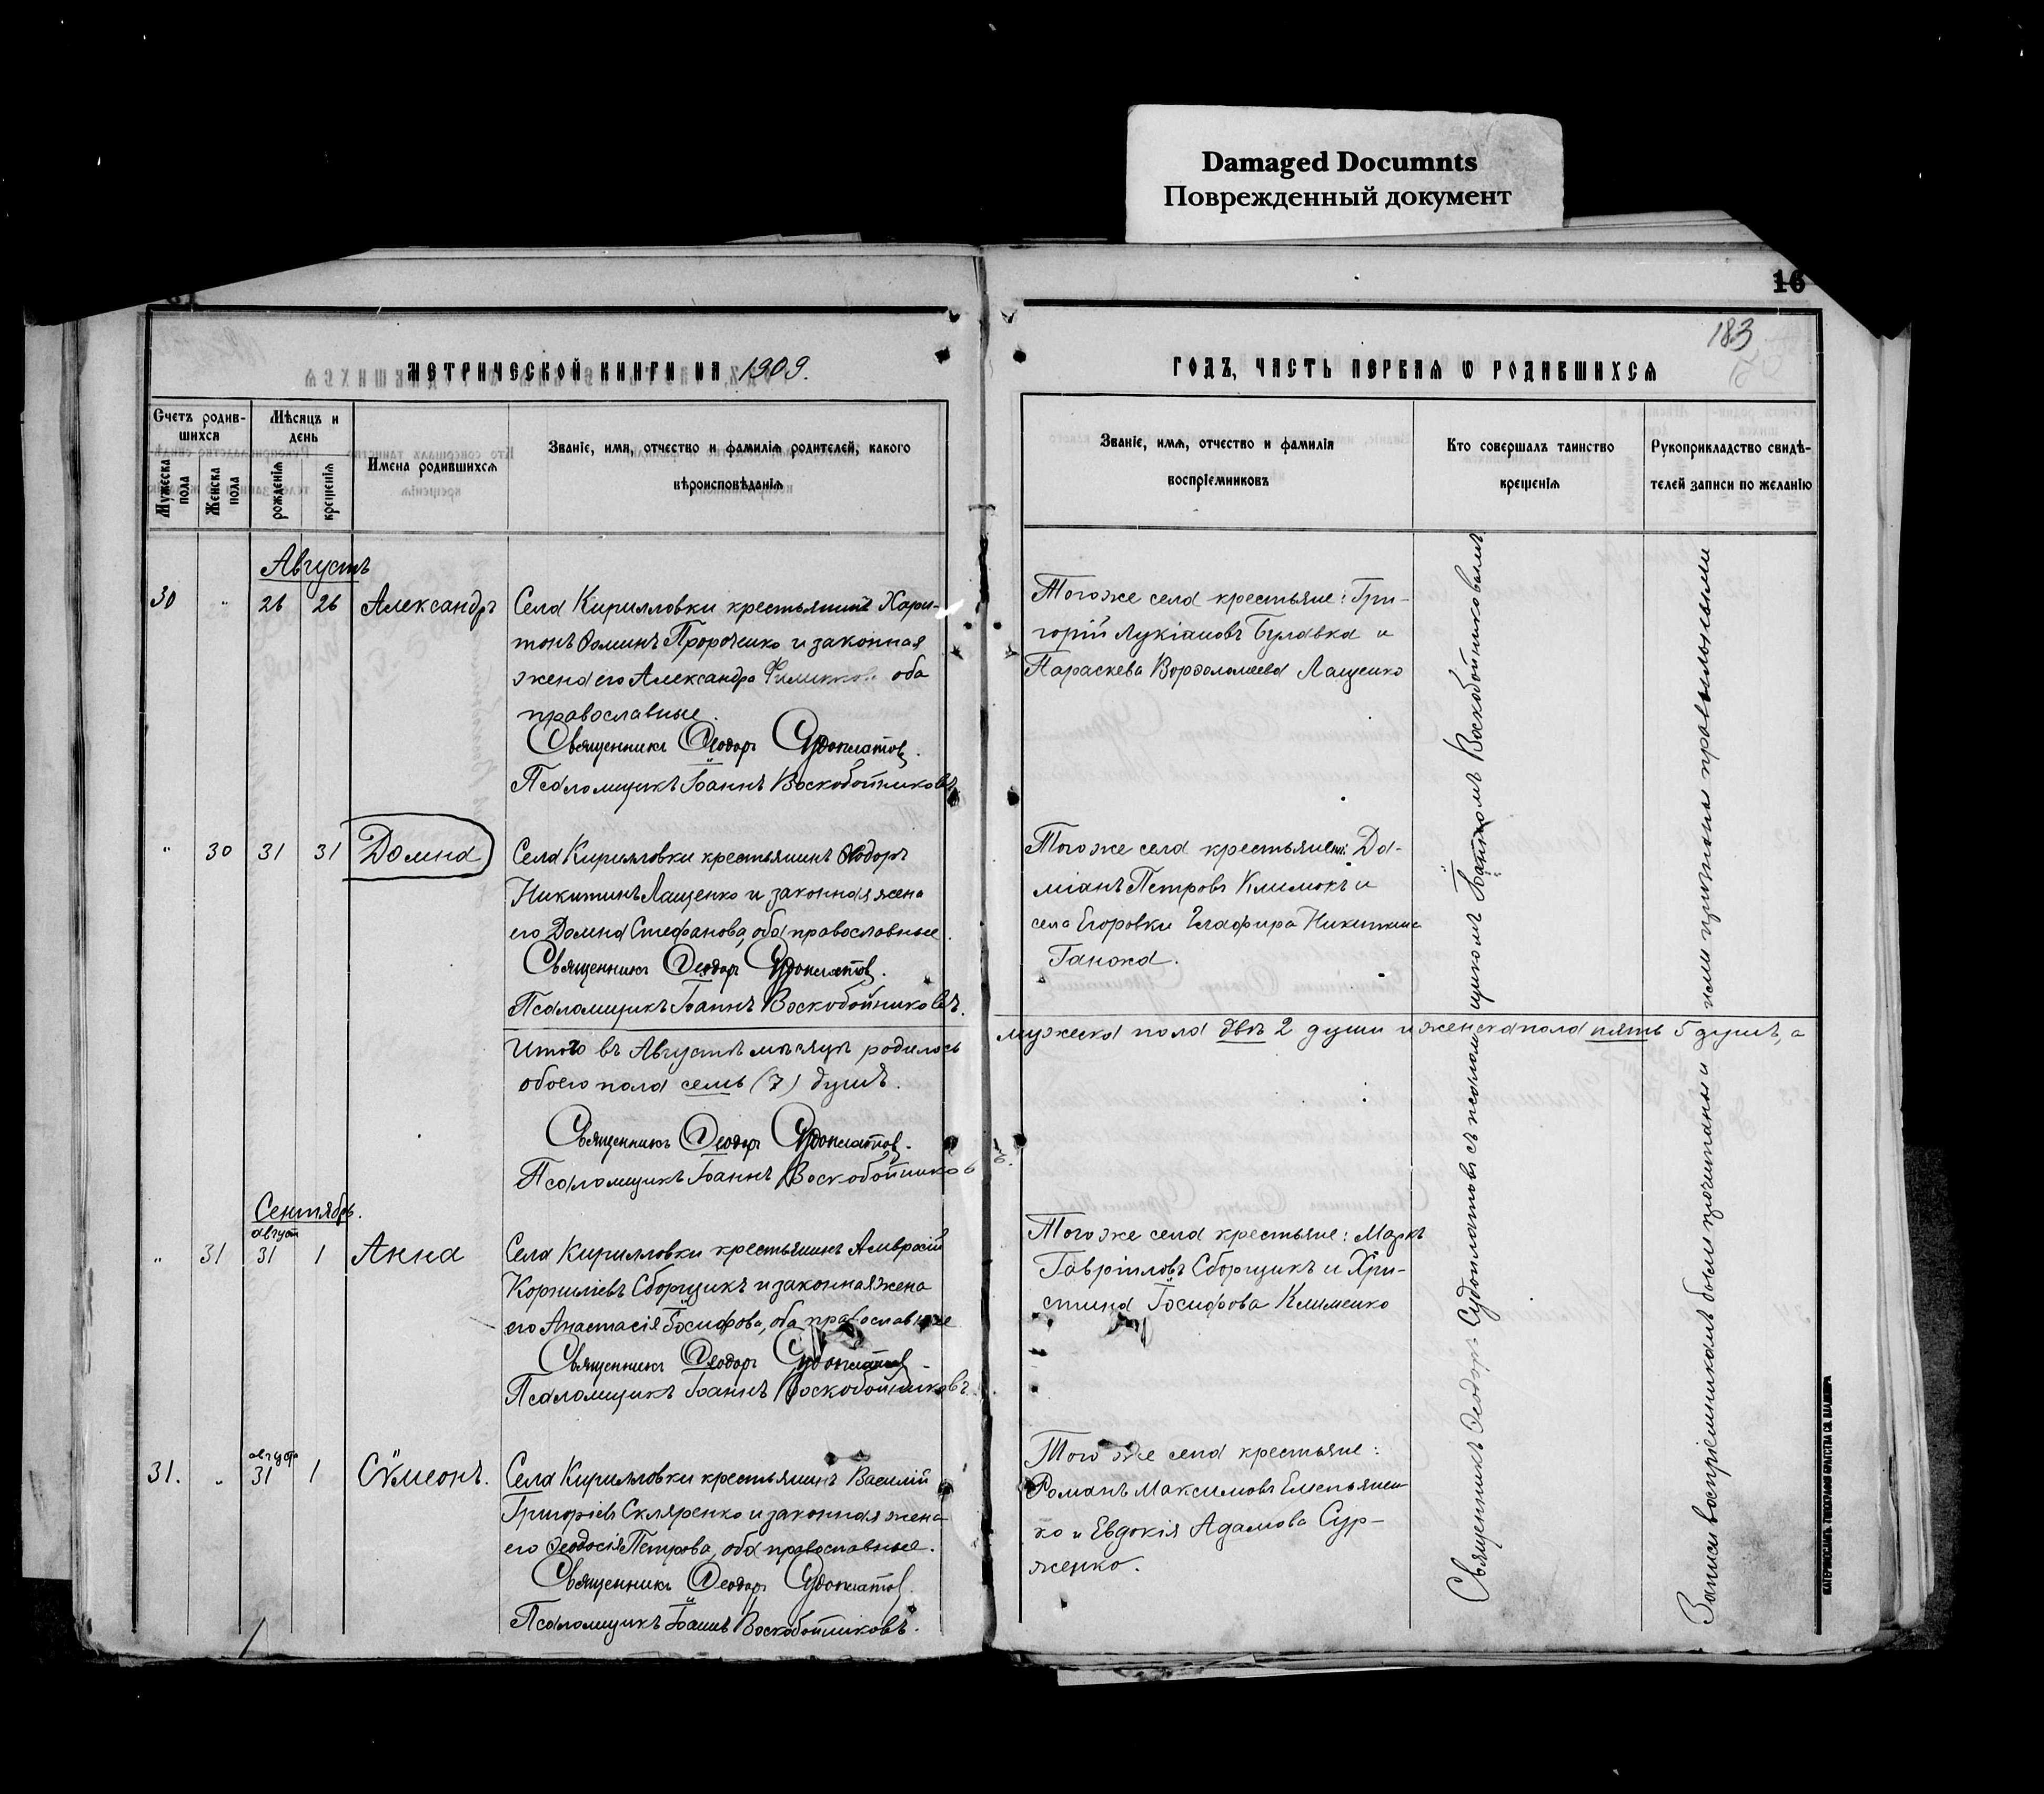 Damaged Documnts
Поврежденный документ
16
183
МЕТРИЧЕСКОЙ КНИГИ НА 1909.
ГОДЪ, ЧАСТЬ ПЕРВАЯ Ѡ РОДИВШИХСЯ
Счетъ родив-
шихся
Мужеска
пола
Женска
пола
Мѣсяцъ и
день
рожденія
крещенія
Имена родившихся
Званіе, имя, отчество и фамилія родителей, какого
вѣроисповѣданія
Званіе, имя, отчество и фамилія
воспріемниковъ
Кто совершалъ таинство
крещенія
Рукоприкладство свидѣ-
телей записи по желанію
Августъ
30 " 26 26 Александръ
Села Кирилловки крестьянинъ Хари-
тонъ Ѳоминъ Пророченко и законная
жена его Александра оба
православные.
Священникъ Ѳеодоръ Судоплатовъ.
Псаломщикъ Іоаннъ Воскобойниковъ
Того же села крестьяне: Гри-
горій Лукіановъ Булавка и
Параскева Варѳоломеева Лащенко
" 30 31 31 Домна
Села Кирилловки крестьянинъ Ѳеодоръ
Никитинъ Лащенко и законная жена
его Домна Стефанова, оба православные.
Священникъ Ѳеодоръ Судоплатовъ.
Псаломщикъ Іоаннъ Воскобойниковъ.
Того же села крестьяне: Да-
міанъ Петровъ Климокъ и
села Егоровки Глафира Никитина
Ганжа.
Итого въ Августѣ мѣсяцѣ родилось
обоего пола семь (7) душъ.
мужеска пола двѣ 2 души и женска пола пять 5 душъ, а
Священникъ Ѳеодоръ Судоплатовъ.
Псаломщикъ Іоаннъ Воскобойниковъ
Сентябрь.
август
" 31 31 1 Анна
Села Кирилловки крестьянинъ Амвросій
Корниліевъ Сборщикъ и законная жена
его Анастасія Іосифова, оба православные
Священникъ Ѳеодоръ Судоплатовъ
Псаломщикъ Іоаннъ Воскобойниковъ.
Того же села крестьяне: Маркъ
Гавріиловъ Сборщикъ и Хри-
стина Іосифова Клименко
августа
31. " 31 1 Сѵмеонъ.
Села Кирилловки крестьянинъ Василій
Григоріевъ Скляренко и законная жена
его Ѳеодосія Петрова, оба православные.
Священникъ Ѳеодоръ Судоплатовъ.
Псаломщикъ Іоаннъ Воскобойниковъ.
Того же села крестьяне:
Романъ Максимовъ Емельянен-
ко и Евдокія Адамова Сур-
женко.
Священникъ Ѳеодоръ Судоплатовъ съ псаломщикомъ Іоанномъ Воскобойниковымъ
Записи воспріемникамъ были прочитаны и ими признаны правильными